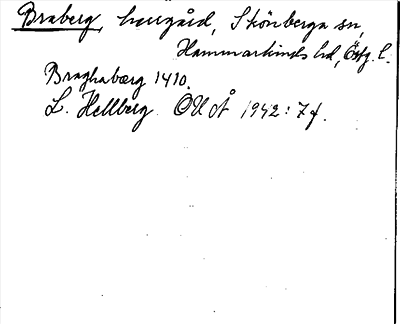 Braberg, herrgård, Skönberga sn,
Hammarkinds hd, Östg. l.
Braghabærg 1410.
L. Hellberg OUÅ 1942: 7 f.